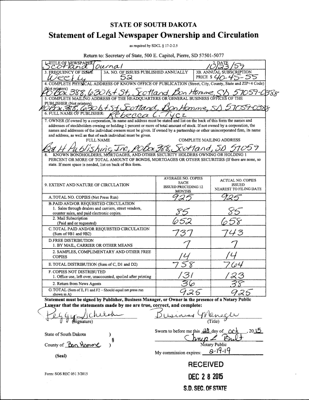 STATE OF SOUTH DAKOTA
Statement of Legal Newspaper Ownership and Circulation
as required by SDCL § 17-2-2.5
Return to: Secretary of State, 500 E. Capitol, Pierre, SD 57501-5077
1. TITLE OF NEWSPAPER
Scotland Journal
2. DATE
3. FREQUENCY OF ISSUE
Weekly
3A. NO. OF ISSUES PUBLISHED ANNUALLY
52
3B. ANNUAL SUBSCRIPTION
PRICE $
4. COMPLETE PHYSICAL ADDRESS OF KNOWN OFFICE OF PUBLICATION (Street, City, County, State and ZIP+4 Code)
(Not printers)
PO Box 388, 630 1st St., Scotland, Bon Homme, SD 57059-0388
5. COMPLETE MAILING ADDRESS OF THE HEADQUARTERS OR GENERAL BUSINESS OFFICES OF THE
PUBLISHER (Not printers)
PO Box 388, 630 1st St, Scotland, Bon Homme, SD 57059-0388
6. FULL NAME OF PUBLISHER:
Rebecca
7. OWNER (If owned by a corporation, its name and address must be stated and also on the back of this form the names and
addresses of stockholders owning or holding 1 percent or more of total amount of stock. If not owned by a corporation, the
names and addresses of the individual owners must be given. If owned by a partnership or other unincorporated firm, its name
and address, as well as that of each individual must be given.
FULL NAME
COMPLETE MAILING ADDRESS
Publishing Inc, PO Box 388, Scotland, SD 57059
8. KNOWN BONDHOLDERS, MORTGAGEES, AND OTHER SECURITY HOLDERS OWNING OR HOLDING 1
PERCENT OR MORE OF TOTAL AMOUNT OF BONDS, MORTGAGES OR OTHER SECURITIES (If there are none, so
state. If more space is needed, list on back of this form.
9. EXTENT AND NATURE OF CIRCULATION
AVERAGE NO. COPIES
EACH
ISSUED PRECEDING 12
MONTHS
ACTUAL NO. COPIES
ISSUED
NEAREST TO FILING DATE
A. TOTAL NO. COPIES (Net Press Run)
925
925
B. PAID AND/OR REQUESTED CIRCULATION
1. Sales through dealers and carriers, street vendors,
counter sales, and paid electronic copies.
85
85
2. Mail Subscription
(Paid and/or requested)
652
658
C. TOTAL PAID AND/OR REQUESTED CIRCULATION
(Sum of 9B1 and 9B2)
737
743
D. FREE DISTRIBUTION
1. BY MAIL, CARRIER OR OTHER MEANS
7
7
2. SAMPLES, COMPLIMENTARY AND OTHER FREE
COPIES
14
14
E. TOTAL DISTRIBUTION (Sum of C, D1 and D2)
758
764
F. COPIES NOT DISTRIBUTED
1. Office use, left over, unaccounted, spoiled after printing
131
123
2. Return from News Agents
36
38
G. TOTAL (Sum of E, F1 and F2 - Should equal net press run
shown in A)
925
925
Statement must be signed by Publisher, Business Manager, or Owner in the presence of a Notary Public
I swear that the statements made by me are true, correct, and complete:
Peggy
Business Manager
(Signature)
(Title)
State of South Dakota )
) §
County of Bon Homme )
(Seal)
Sworn to before me this day of Oct , 2015
Notary Public
My commission expires: 8-19-19
RECEIVED
DEC 28 2015
S.D. SEC. OF STATE